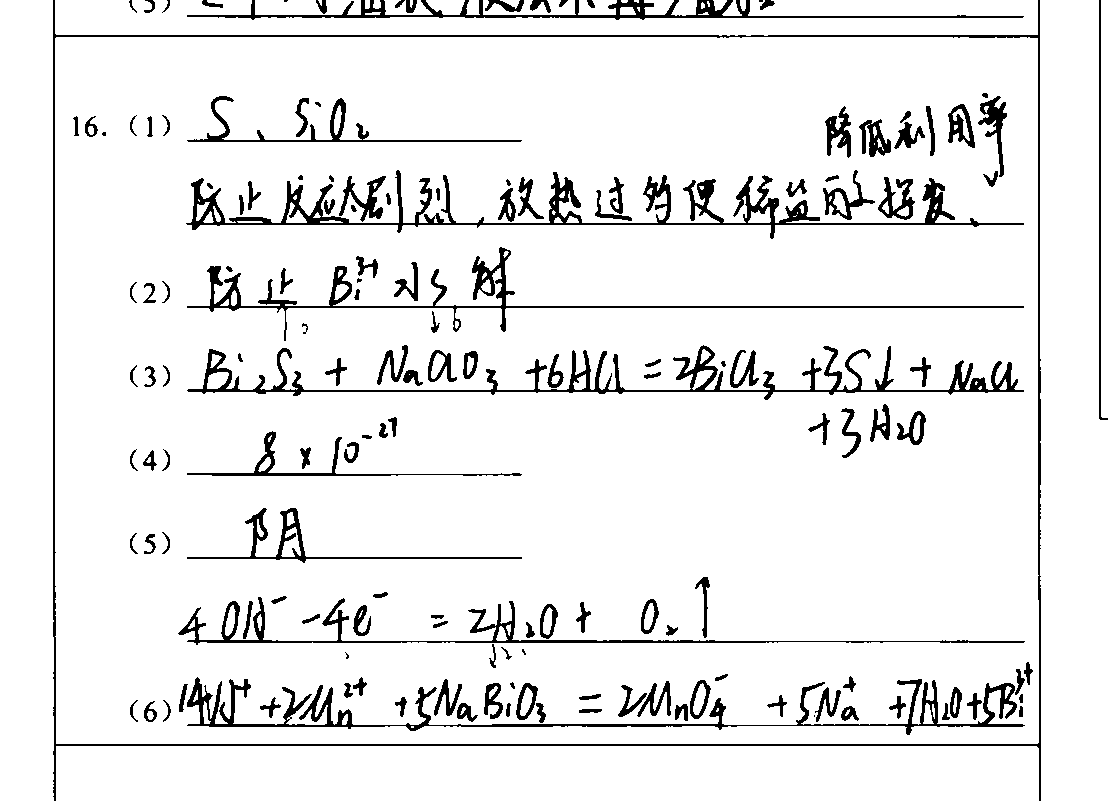 16.（1） S、SiO₂
降低利用率
防止反应太剧烈,放热过多使稀盐酸挥发、
（2） 防止 Bi³⁺ 水解
（3） Bi₂S₃ + NaClO₃ +6HCl = 2BiCl₃ +3S↓ + NaCl
+3H₂O
（4） 8 × 10⁻²⁷
（5） 阴
4OH⁻ -4e⁻ = 2H₂O + O₂↑
（6） 14H⁺ +2Mn²⁺ +5NaBiO₃ = 2MnO₄⁻ +5Na⁺ +7H₂O+5Bi³⁺